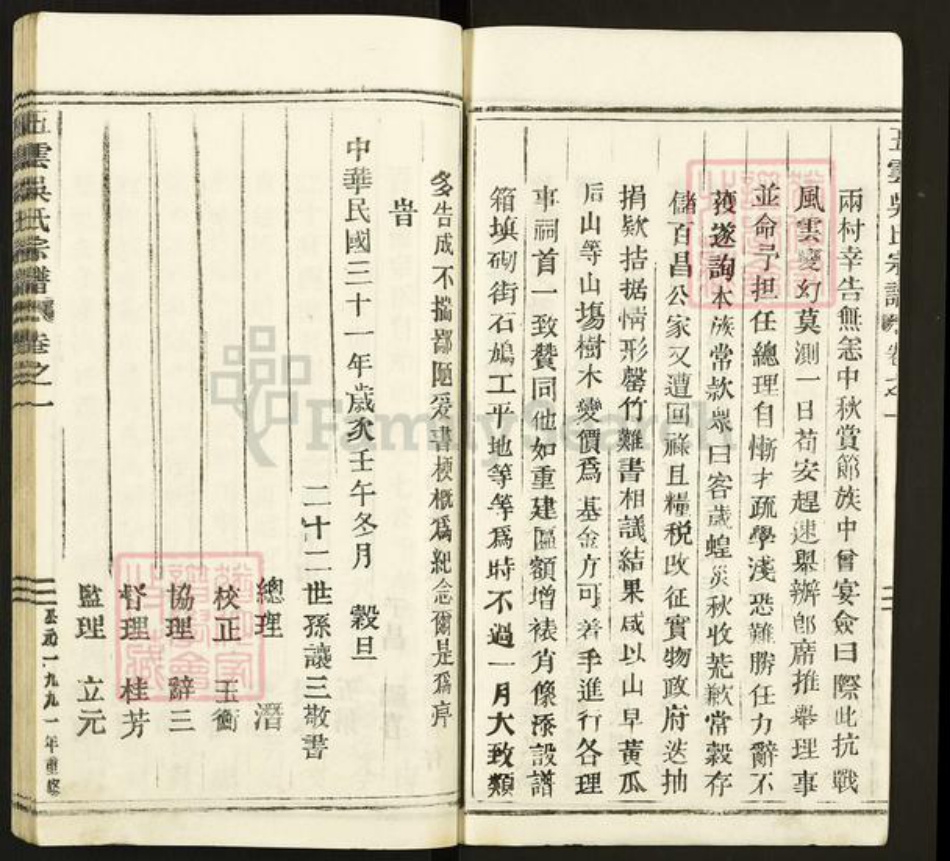 五雲吳氏宗譜 卷之一
兩村幸告無恙中秋賞節族中曾宴僉曰際此抗戰
風雲變幻莫測一日苟安趕速舉辦郎席推舉理事
並命予担任總理自慚才疏學淺恐難勝任力辭不
獲遂詢本族常款衆曰客歲蝗災秋收荒歉常穀存
儲百昌公家又遭回祿且糧税改征實物政府迭抽
捐欵拮据情形罄竹難書相議結果咸以山早黃瓜
后山等山塲樹木變價爲基金方可着手進行各理
事祠首一致贊同他如重建匾額增裱肖像添設譜
箱填砌街石鳩工平地等等爲時不過一月大致類
多告成不揣鄙陋爰書梗概爲紀念爾是爲序
旹
中華民國三十一年歲次壬午冬月 穀旦
二十二世孫讓三敬書
總理 濳
校正 玉衡
協理 辭三
督理 桂芳
監理 立元
五雲吳氏宗譜 卷之一
公元一九九一年重修
FamilySearch